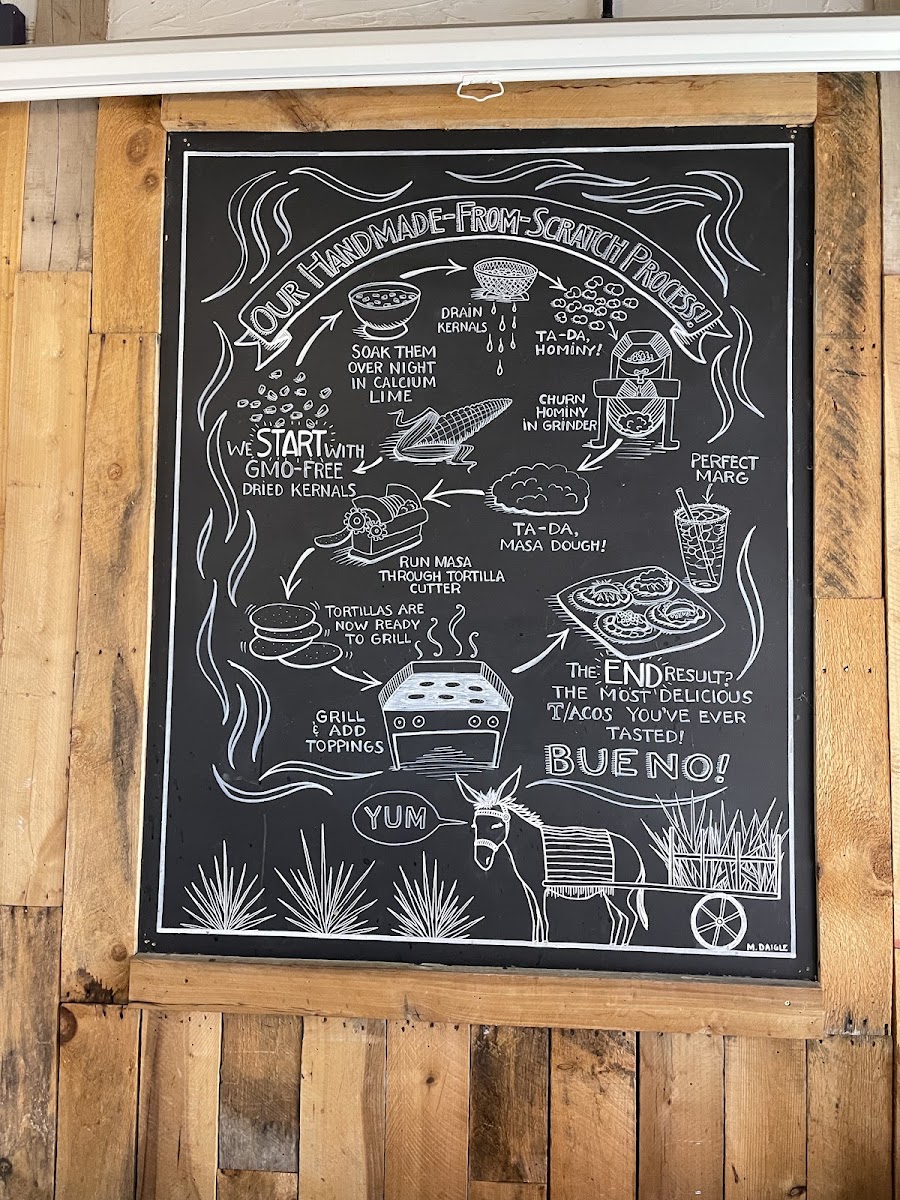 OUR HANDMADE-FROM-SCRATCH PROCESS!
WE START WITH
GMO-FREE
DRIED KERNALS
SOAK THEM
OVER NIGHT
IN CALCIUM
LIME
DRAIN
KERNALS
TA-DA,
HOMINY!
CHURN
HOMINY
IN GRINDER
TA-DA,
MASA DOUGH!
RUN MASA
THROUGH TORTILLA
CUTTER
TORTILLAS ARE
NOW READY
TO GRILL
GRILL
& ADD
TOPPINGS
PERFECT
MARG
THE END RESULT?
THE MOST DELICIOUS
T/ACOS YOU'VE EVER
TASTED!
BUENO!
YUM
M. DAIGLE